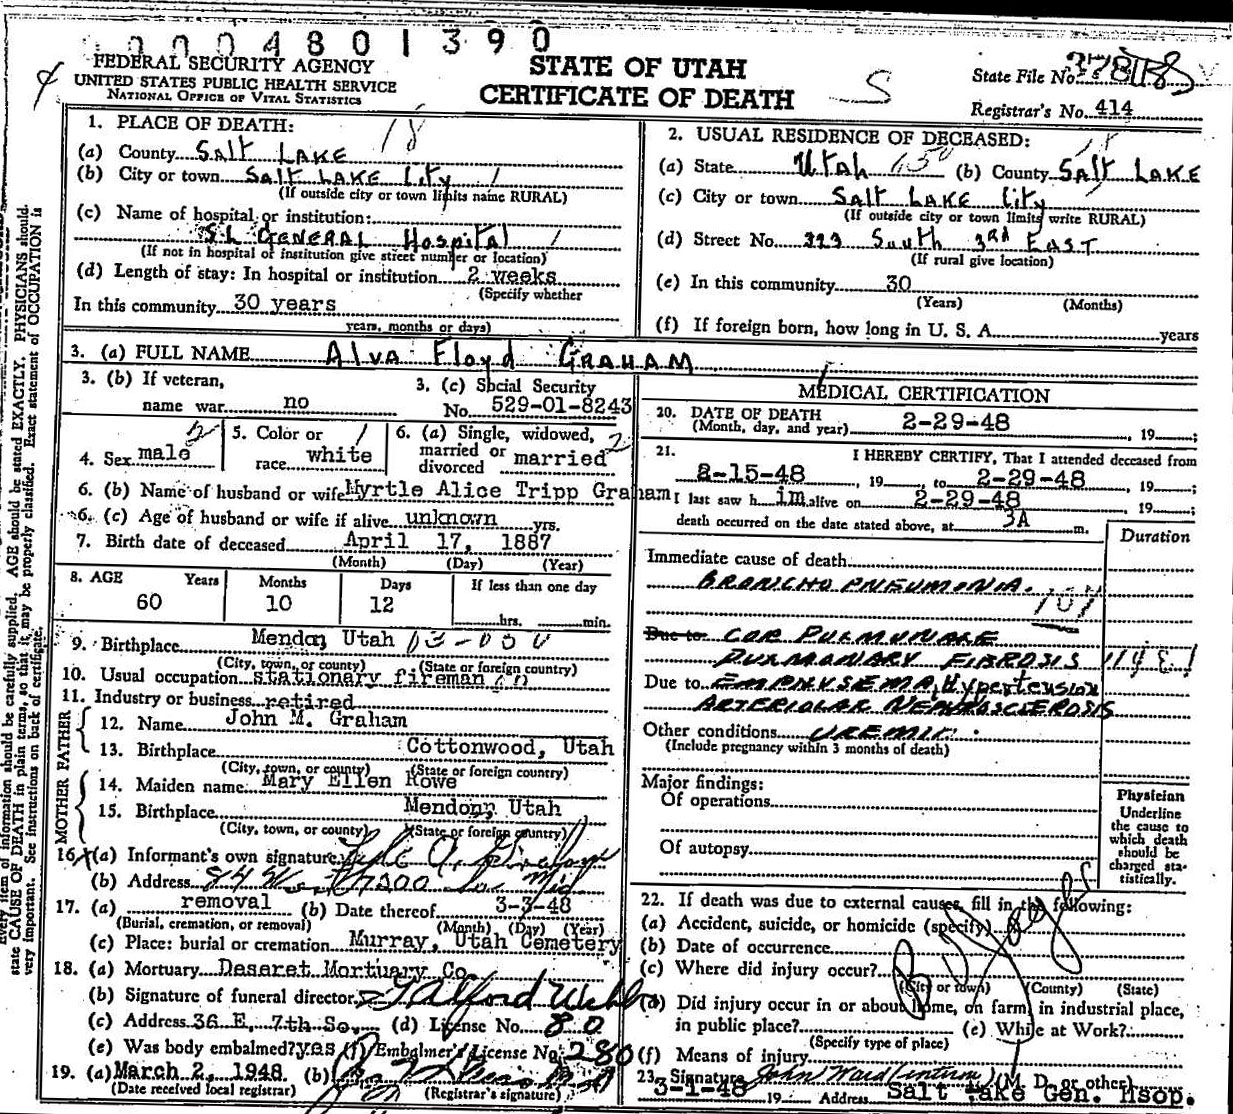 0004801390
FEDERAL SECURITY AGENCY
UNITED STATES PUBLIC HEALTH SERVICE
NATIONAL OFFICE OF VITAL STATISTICS
STATE OF UTAH
CERTIFICATE OF DEATH
S
State File No.
Registrar's No. 414
1. PLACE OF DEATH: 18
(a) County SALT LAKE
(b) City or town SALT LAKE City
(If outside city or town limits name RURAL)
(c) Name of hospital or institution:
S.L GENERAL Hospital
(If not in hospital or institution give street number or location)
(d) Length of stay: In hospital or institution 2 weeks
(Specify whether
In this community 30 years
years, months or days)
2. USUAL RESIDENCE OF DECEASED:
(a) State Utah (b) County SALT LAKE
(c) City or town SALT LAKE City
(If outside city or town limits write RURAL)
(d) Street No. 323 South 3RD EAST
(If rural give location)
(e) In this community 30
(Years) (Months)
(f) If foreign born, how long in U. S. A. years
3. (a) FULL NAME Alva Floyd GRAHAM
3. (b) If veteran,
name war no
3. (c) Social Security
No. 529-01-8243
4. Sex male
5. Color or
race white
6. (a) Single, widowed,
married or
divorced married
6. (b) Name of husband or wife Myrtle Alice Tripp Graham
6. (c) Age of husband or wife if alive unknown yrs.
7. Birth date of deceased April 17, 1887
(Month) (Day) (Year)
8. AGE Years Months Days If less than one day
60 10 12 hrs. min.
9. Birthplace Mendon, Utah
(City, town, or county) (State or foreign country)
10. Usual occupation stationary fireman
11. Industry or business retired
FATHER
12. Name John M. Graham
13. Birthplace Cottonwood, Utah
(City, town, or county) (State or foreign country)
MOTHER
14. Maiden name Mary Ellen Rowe
15. Birthplace Mendon, Utah
(City, town, or county) (State or foreign country)
16. (a) Informant's own signature
(b) Address
17. (a) removal (b) Date thereof 3-3-48
(Burial, cremation, or removal) (Month) (Day) (Year)
(c) Place: burial or cremation Murray, Utah Cemetery
18. (a) Mortuary Deseret Mortuary Co.
(b) Signature of funeral director
(c) Address 36 E. 7th So. (d) License No. 80
(e) Was body embalmed? yes (f) Embalmer's License No. 280
19. (a) March 2, 1948 (b)
(Date received local registrar) (Registrar's signature)
MEDICAL CERTIFICATION
20. DATE OF DEATH
(Month, day, and year) 2-29-48, 19 ;
21. I HEREBY CERTIFY, That I attended deceased from
2-15-48, 19 , to 2-29-48, 19 ;
I last saw h im alive on 2-29-48, 19 ;
death occurred on the date stated above, at 3A m.
Duration
Immediate cause of death
BRONCHOPNEUMONIA.
107
Due to COR PULMONALE
PULMONARY FIBROSIS
Due to EMPHYSEMA, Hypertension
ARTERIOLAR NEPHROSCLEROSIS
Other conditions UREMIC.
(Include pregnancy within 3 months of death)
Major findings:
Of operations
Of autopsy
Physician
Underline
the cause to
which death
should be
charged sta-
tistically.
22. If death was due to external causes, fill in the following:
(a) Accident, suicide, or homicide (specify)
(b) Date of occurrence
(c) Where did injury occur?
(City or town) (County) (State)
(d) Did injury occur in or about home, on farm, in industrial place,
in public place? (e) While at Work?
(Specify type of place)
(f) Means of injury
23. Signature John Ward (intern) (M. D. or other)
3-1-48 19 Address Salt Lake Gen. Hsop.
Every item of information should be carefully supplied. AGE should be stated EXACTLY. PHYSICIANS should
state CAUSE OF DEATH in plain terms, so that it may be properly classified. Exact statement of OCCUPATION is
very important. See instructions on back of certificate.